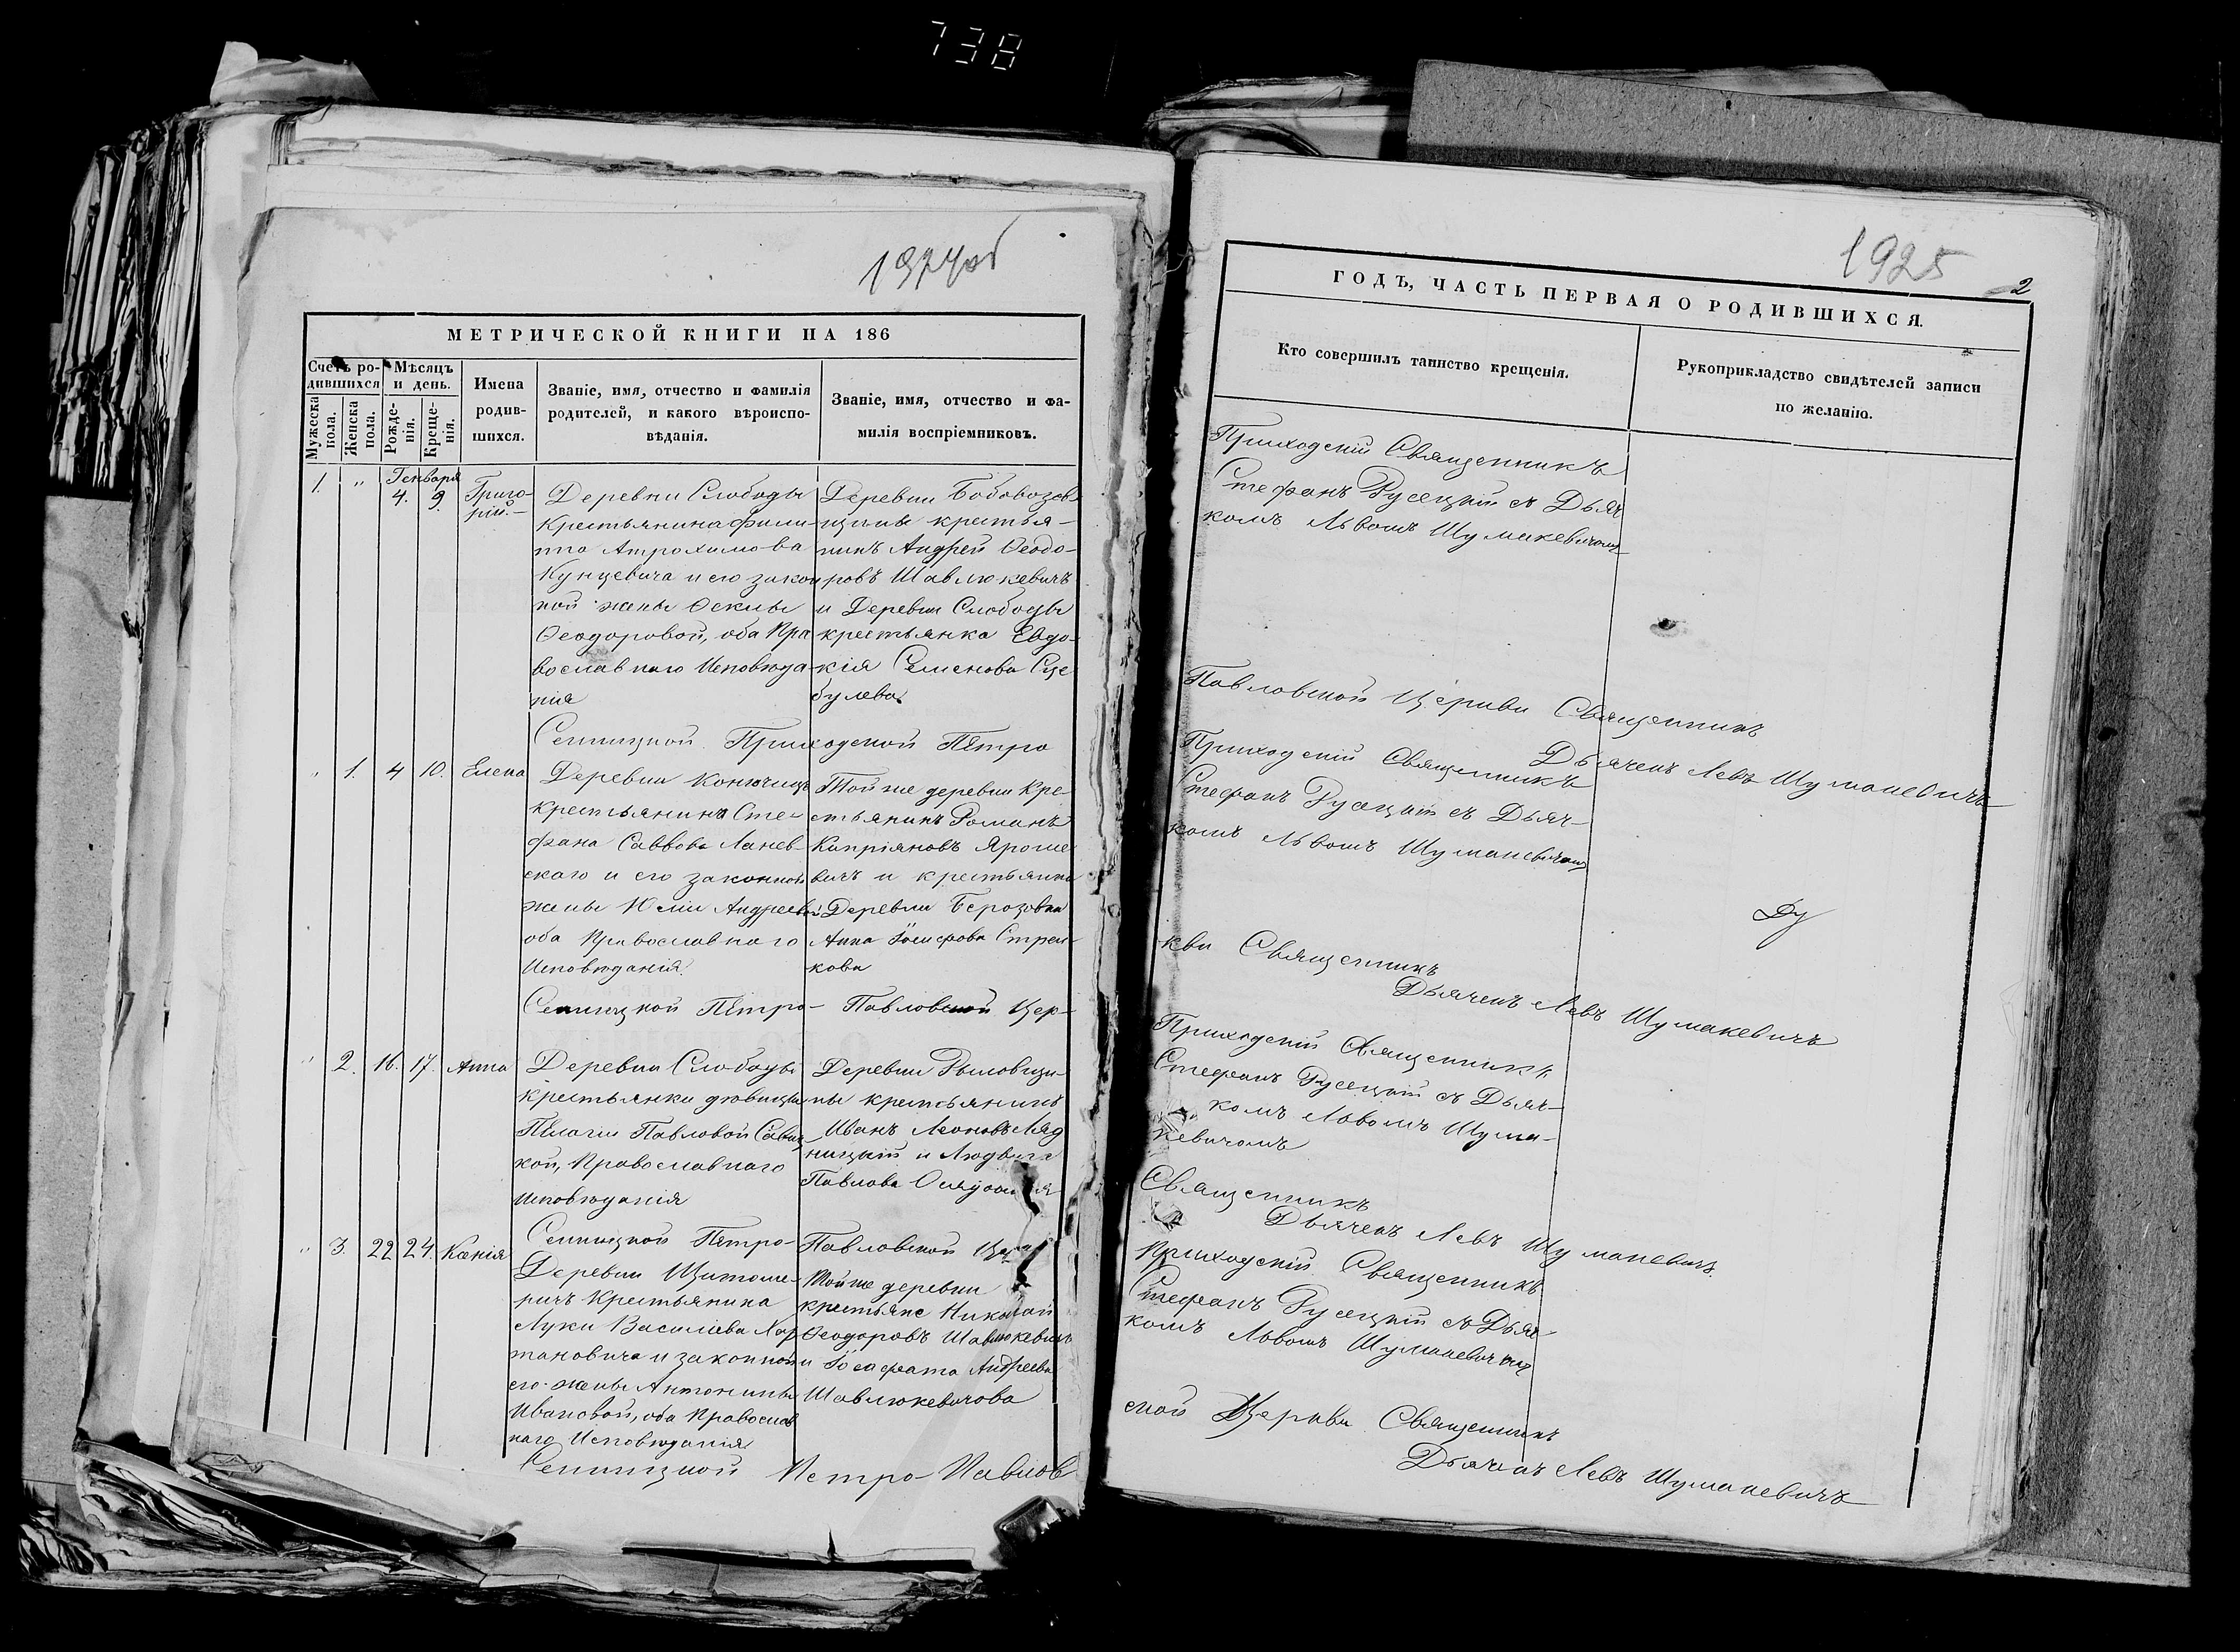 738
1974об
МЕТРИЧЕСКОЙ КНИГИ НА 186
Счетъ родившихся
Мужеска пола.
Женска пола.
Мѣсяцъ и день.
Рожденія.
Крещенія.
Имена родившихся.
Званіе, имя, отчество и фамилія родителей, и какого вѣроисповѣданія.
Званіе, имя, отчество и фамилія воспріемниковъ.
Генваря
1. " 4. 9. Григорій.
Деревни Слободы
Крестьянина Фили-
ппа Атрохимова
Кунцевича и его закон
ной жены Ѳеклы
Ѳеодоровой, оба Пра
вославнаго Исповѣда-
нія
Деревни Бобовозов
щины крестья-
нинъ Андрей Ѳеодо-
ровъ Шавлюкевичъ
и Деревни Слободы
крестьянка Евдо-
кія Семенова Сце
булева
Сенницкой Приходской Петро
" 1. 4 10. Елена
Деревни Конючицъ
крестьянина Сте-
фана Саввова Ланев-
скаго и его законной
жены Юліи Андреевой
оба Православнаго
Исповѣданія.
Той же деревни Кре-
стьянинъ Романъ
Кипріяновъ Яроше
вичъ и крестьянка
Деревни Берозовки
Анна Іосифова Стрел-
кова
Сенницкой Петро- Павловской Цер-
" 2. 16. 17. Анна
Деревни Слободы
крестьянки дѣвицы
Пелагіи Павловой Савиц
кой, Православнаго
Исповѣданія
Деревни Рыловщи-
ны крестьянинъ
Иванъ Леоновъ Ляд
ницкій и Людвига
Павлова
Сенницкой Петро- Павловской
" 3. 22 24. Ксенія
Деревни Щитоме-
ричъ Крестьянина
Луки Василіева Хар
тановича и законной
его жены Антонины
Ивановой, оба Православ
наго Исповѣданія
Той же деревни
крестьяне Николай
Ѳеодоровъ Шавлюкевичъ
и Іосафата Андреева
Шавлюкевичова
Сенницкой Петро-Павлов
1925
2
ГОДЪ, ЧАСТЬ ПЕРВАЯ О РОДИВШИХСЯ.
Кто совершилъ таинство крещенія.
Рукоприкладство свидѣтелей записи по желанію.
Приходскій Священникъ
Стефанъ Русецкій съ Дьяч
комъ Львомъ Шумакевичомъ
Павловской Церкви Священникъ
Дьячекъ Левъ Шумакевичъ
Приходскій Священникъ
Стефанъ Русецкій съ Дьяч-
комъ Львомъ Шумакевичомъ
Ду
кви Священникъ
Дьячекъ Левъ Шумакевичъ
Приходскій Священникъ
Стефанъ Русецкій съ Дьяч-
комъ Львомъ Шума-
кевичомъ
Священникъ
Дьячекъ Левъ Шумакевичъ.
Приходскій Священникъ
Стефанъ Русецкій съ Дьяч
комъ Львомъ Шумакевичомъ
ской Церкви Священникъ
Дьячекъ Левъ Шумакевичъ